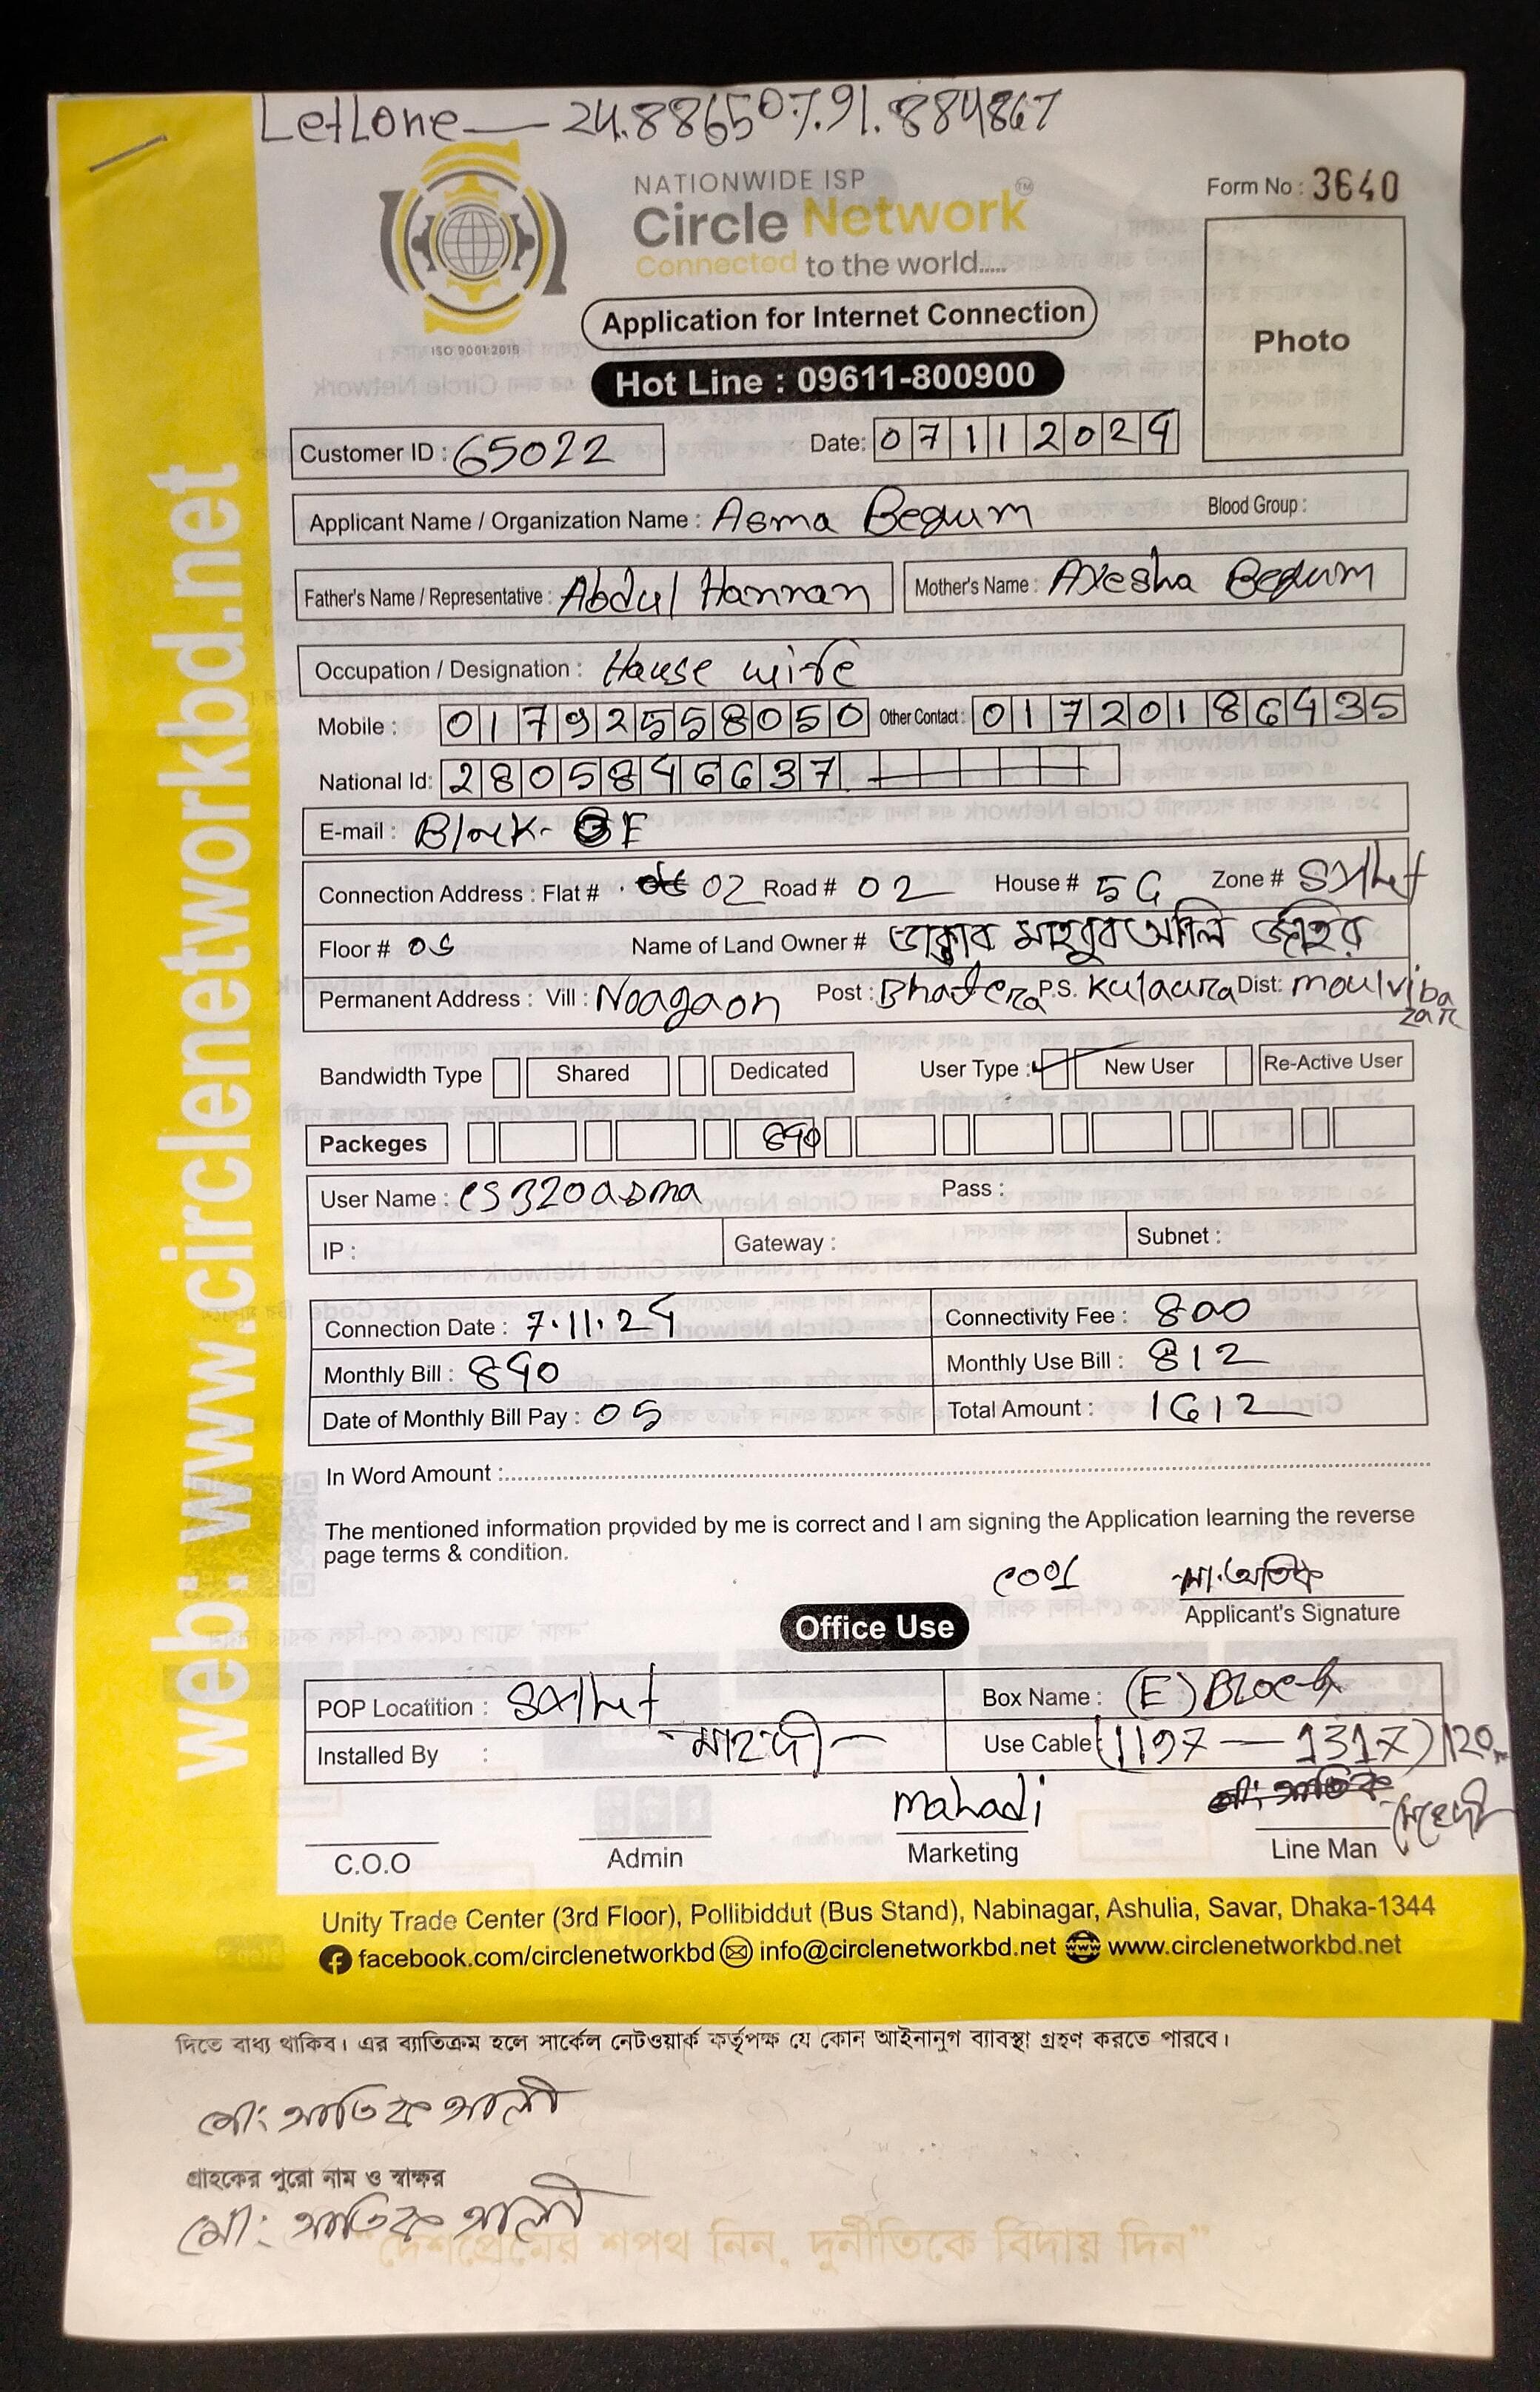 LetLone — 24.886507.91.884867
NATIONWIDE ISP
Circle Network™
Connected to the world.....
ISO 9001:2015
Form No : 3640
Photo
Application for Internet Connection
Hot Line : 09611-800900
Customer ID : 65022 Date: 07112024
Applicant Name / Organization Name : Asma Begum Blood Group :
Father's Name / Representative : Abdul Hannan Mother's Name : Ayesha Begum
Occupation / Designation : House wife
Mobile : 01792558050 Other Contact : 01720186435
National Id: 2805846637
E-mail : Block- E
Connection Address : Flat # 02 Road # 02 House # 56 Zone # Sylhet
Floor # 05 Name of Land Owner # ডাক্তার মাহবুব আলি জহির
Permanent Address : Vill : Noagaon Post : Bhatera P.S. Kulaura Dist: Moulvibazar
Bandwidth Type Shared Dedicated User Type : New User Re-Active User
Packeges 840
User Name : CS320asma Pass :
IP : Gateway : Subnet :
Connection Date : 7.11.24 Connectivity Fee : 800
Monthly Bill : 840 Monthly Use Bill : 812
Date of Monthly Bill Pay : 05 Total Amount : 1612
In Word Amount :
The mentioned information provided by me is correct and I am signing the Application learning the reverse
page terms & condition.
মো. আতিক
Applicant's Signature
Office Use
POP Locatition : Sylhet Box Name : (E) Block
Installed By : মাহদী Use Cable : (1197 — 1317) 120m
Mahadi
C.O.O Admin Marketing Line Man
Unity Trade Center (3rd Floor), Pollibiddut (Bus Stand), Nabinagar, Ashulia, Savar, Dhaka-1344
facebook.com/circlenetworkbd info@circlenetworkbd.net www.circlenetworkbd.net
web: www.circlenetworkbd.net
দিতে বাধ্য থাকিব। এর ব্যতিক্রম হলে সার্কেল নেটওয়ার্ক কর্তৃপক্ষ যে কোন আইনানুগ ব্যাবস্থা গ্রহণ করতে পারবে।
মো: আতিক আলী
গ্রাহকের পুরো নাম ও স্বাক্ষর
মো: আতিক আলী
"দেশপ্রেমের শপথ নিন, দুর্নীতিকে বিদায় দিন"